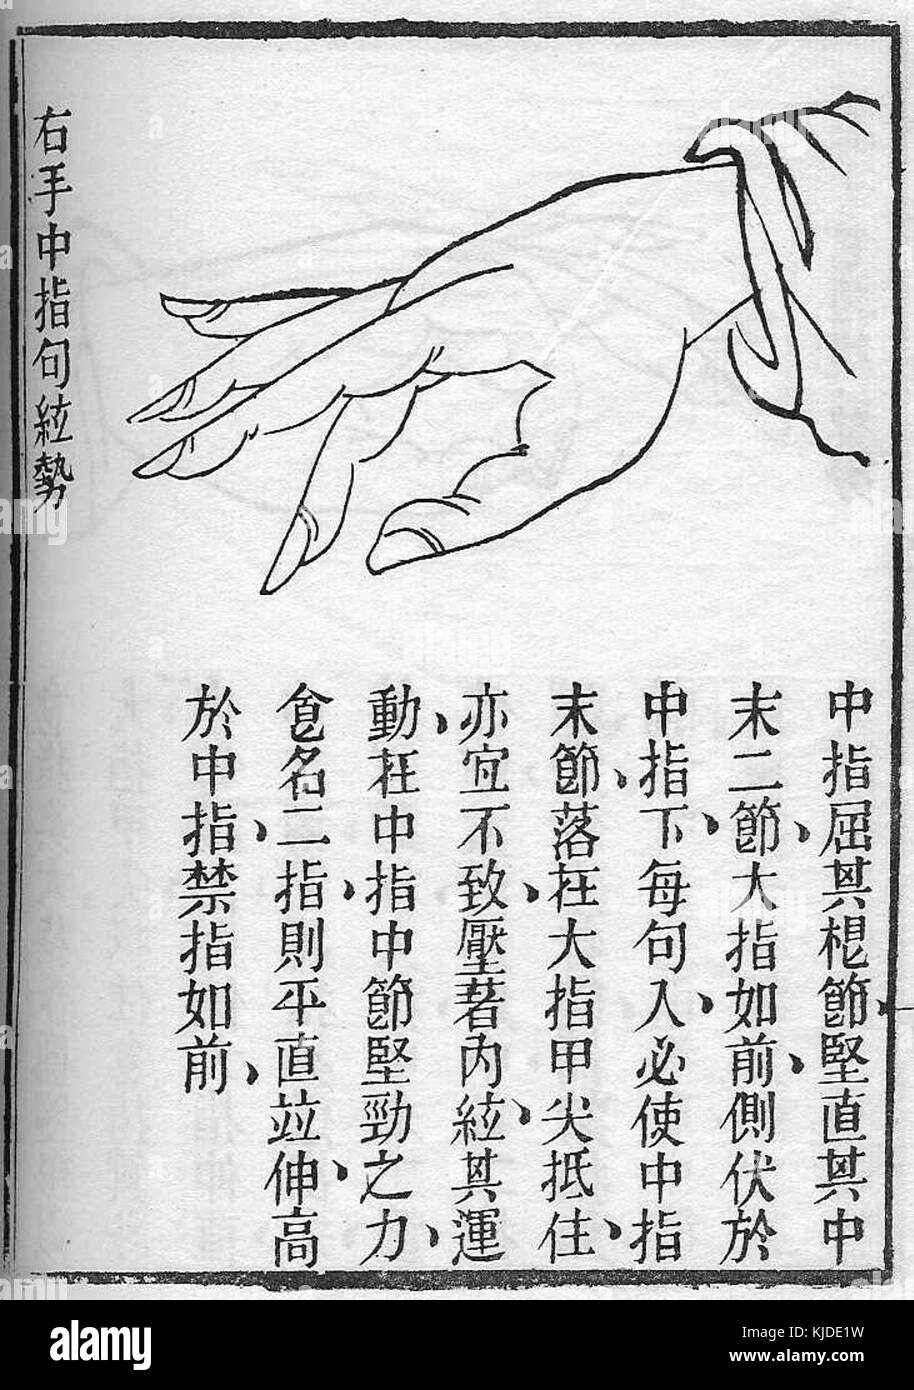 中指屈其根節、堅直其中
末二節、大指如前、側伏於
中指下、每句入、必使中指
末節、落在大指甲尖抵住、
亦宜不致壓著內絃、其運
動、在中指中節堅勁之力、
食名二指、則平直竝伸、高
於中指、禁指如前、
右手中指句絃勢
alamy
Image ID: KJDE1W
www.alamy.com